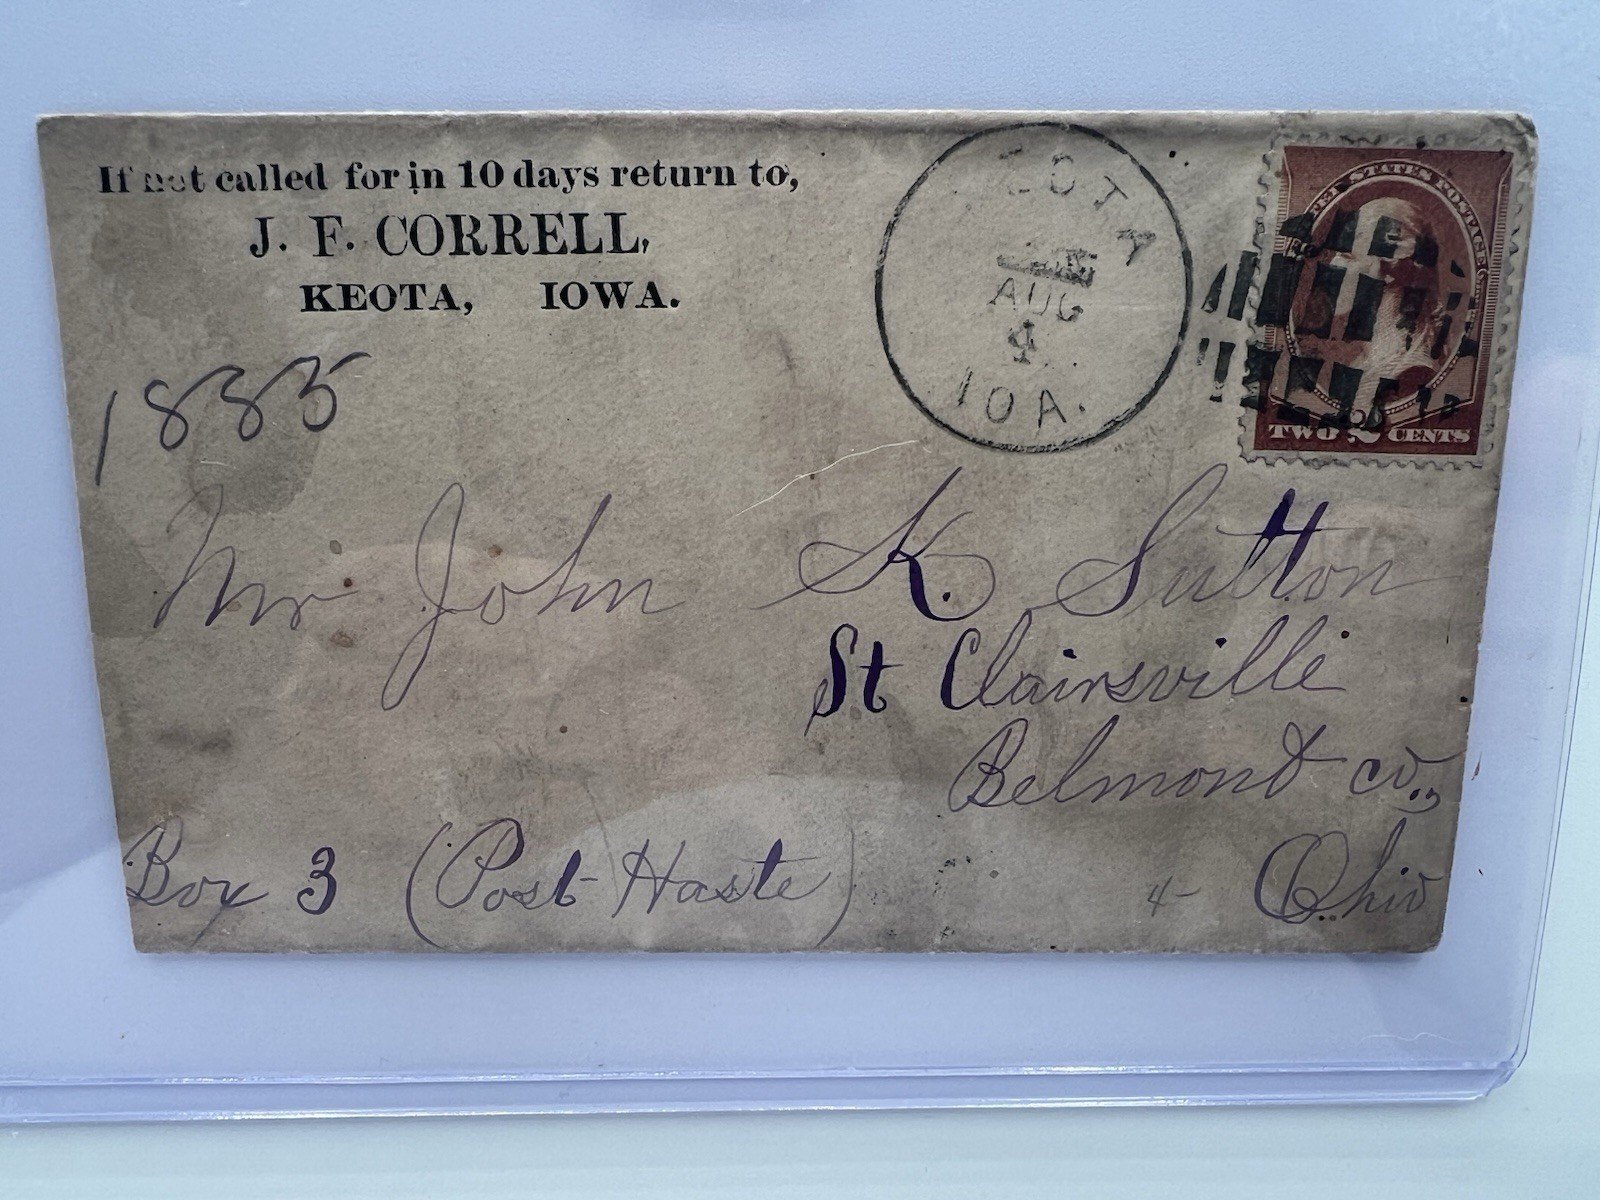 If not called for in 10 days return to,
J. F. CORRELL,
KEOTA, IOWA.
EOTA
AUG
4
IOA.
UNITED STATES POSTAGE
TWO 2 CENTS
1885
Mr John K. Sutton
St Clairsville
Belmond co.,
Box 3 (Post Haste)
4
Ohio